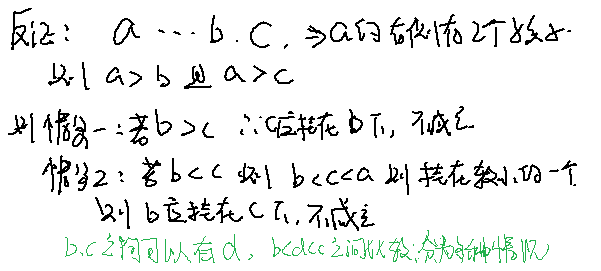 反证： a … b . c . ⇒ a 的右侧有2个数
则 a > b 且 a > c
则情况一：若 b > c ∴ c应接在 b下，不成立
情况2：若 b < c 则 b < c < a 则接在较小的一个
则 b应接在 c下，不成立
b.c之间可以有d， b<d<c之间比较，分为多种情况